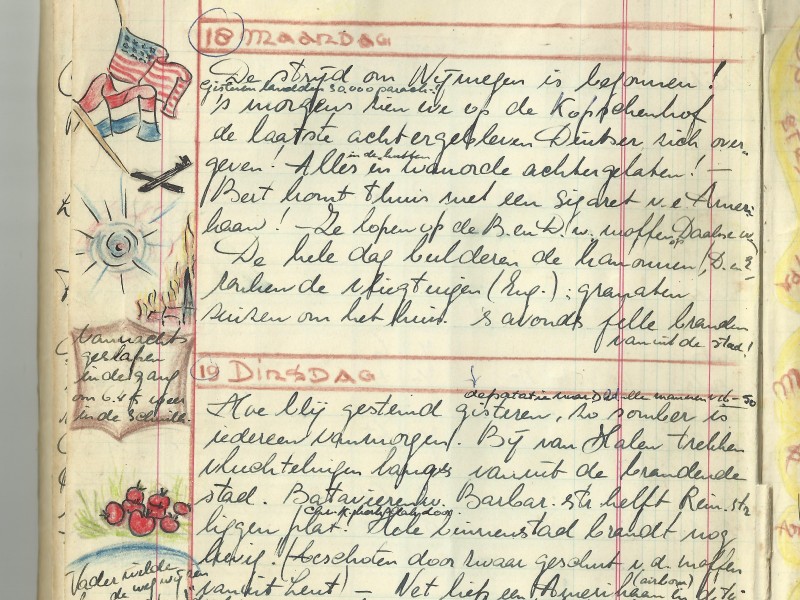 18 MAANDAG
De strijd om Nijmegen is begonnen!
gisteren landden 30.000 parach.!
's morgens zien we op de Kopschenhof
de laatste achtergebleven Duitser zich over-
geven! Alles in wanorde achtergelaten! -
in de hutten
Bert komt thuis met een sigaret v.e Ameri-
kaan! - Ze lopen op de B. en D. w. moffen op Daalse w
De hele dag bulderen de kanonnen, D. en E
ronkende vliegtuigen (Eng.): granaten
suizen om het huis. 's avonds felle branden
vanuit de stad!
Vannacht
geslapen
in de gang
om 6.45 weer
in de schuilk.
19 DINSDAG
deportatie van alle mannen v. 16-50
Hoe blij gestemd gisteren, zo somber is
iedereen vanmorgen. Bij van Halen trekken
vluchtelingen langs vanuit de brandende
stad. Batavierenw. Barbar. str helft Rem. str
liggen plat!
Hele binnenstad brandt nog
hevig. (beschoten door zwaar geschut v.d. moffen
vanuit Lent) - Net liep een Amerikaan in
(airborn)
Vader wilde
de weg wijzen